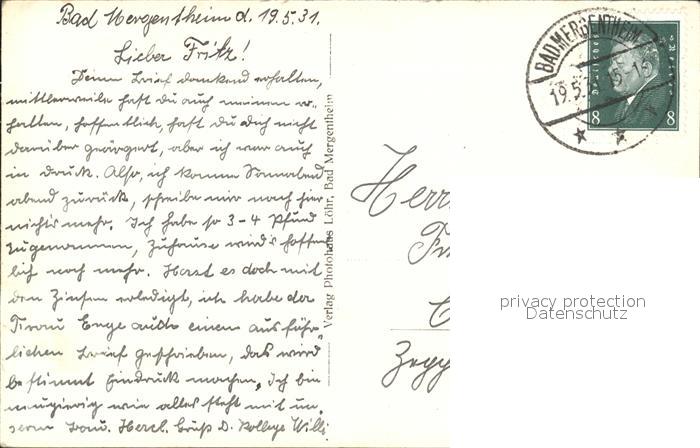 Bad Mergentheim d. 19.5.31.
Lieber Fritz!
Deinen Brief dankend erhalten,
mittlerweile hast du auch meinen er-
halten, hoffentlich hast du dich nicht
darüber geärgert, aber ich war auch
in druck. Also, ich komme Sonnabend
abend zurück, schreibe mir nach hier
nichts mehr. Ich habe so 3-4 Pfund
zugenommen, zuhause wird's hoffent
lich noch mehr. Hast es doch mit
den Zinsen erledigt, ich habe der
Frau Enge auch einen ausführ
lichen Brief geschrieben, das wird
bestimmt Eindruck machen, Ich bin
neugierig wie alles steht mit un
serm Bau. Herzl. Gruß D. Kollege Willi
Verlag Photohaus Löhr, Bad Mergentheim
BAD MERGENTHEIM
19.5.31
Deutsches Reich
8 8
Herr
privacy protection
Datenschutz